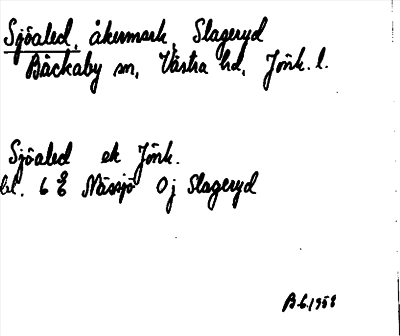 Sjöaled, åkermark, Slageryd
Bäckaby sn, Västra hd, Jönk. l.
Sjöaled ek Jönk.
bl. 6 E Nässjö Oj Slageryd
AB 1958